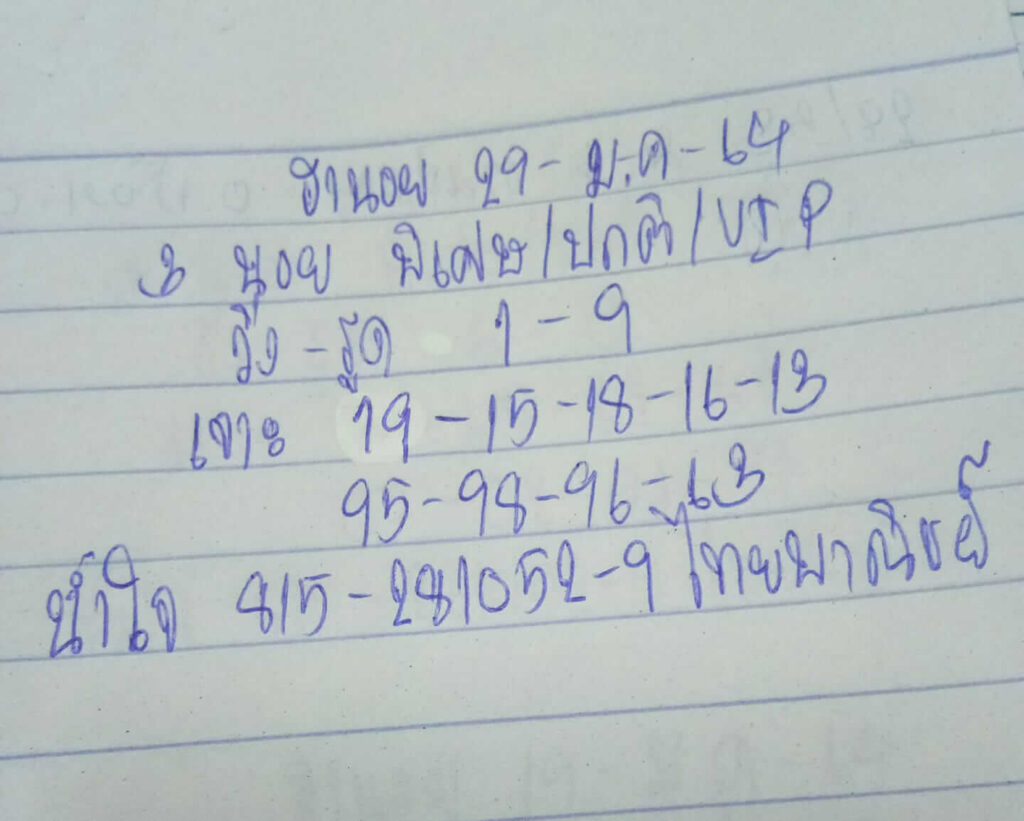 ฮานอย 29-ม.ค-64
3 นอย พิเศษ/ปกติ/VIP
วิ่ง-รูด 1-9
เจาะ 19-15-18-16-13
95-98-96-63
น้ำใจ 815-281052-9 ไทยพาณิชย์